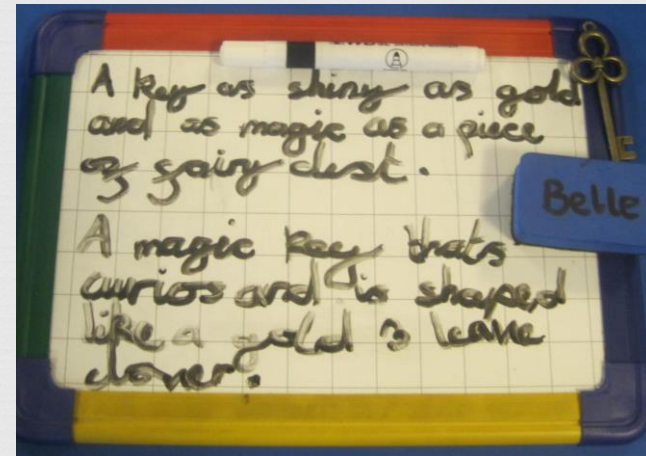 A key as shiny as gold
and as magic as a piece
of fairy dust.
Belle
A magic key thats
curios and is shaped
like a gold 3 leave
clover.